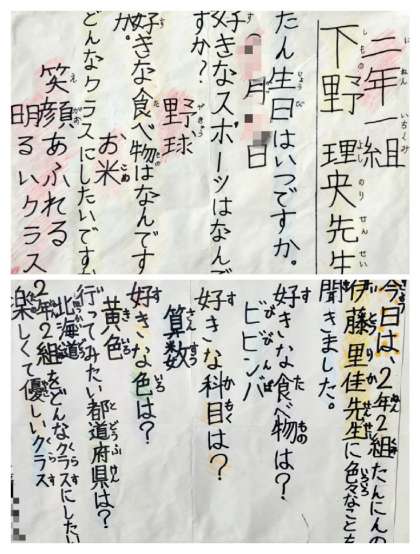 二年一組
下野 理央先生
たん生日はいつですか。
月 日
好きなスポーツはなんで
すか?
野球
好きな食べ物はなんです
か。
お米
どんなクラスにしたいです
笑顔あふれる
明るいクラス
今日は、2年2組たんにんの
伊藤里佳先生に色々なことを
聞きました。
好きな食べ物は?
ビビンバ
好きな科目は?
算数
好きな色は?
黄色
行ってみたい都道府県は?
北海道
2年2組をどんなクラスにしたい
楽しくて優しいクラス